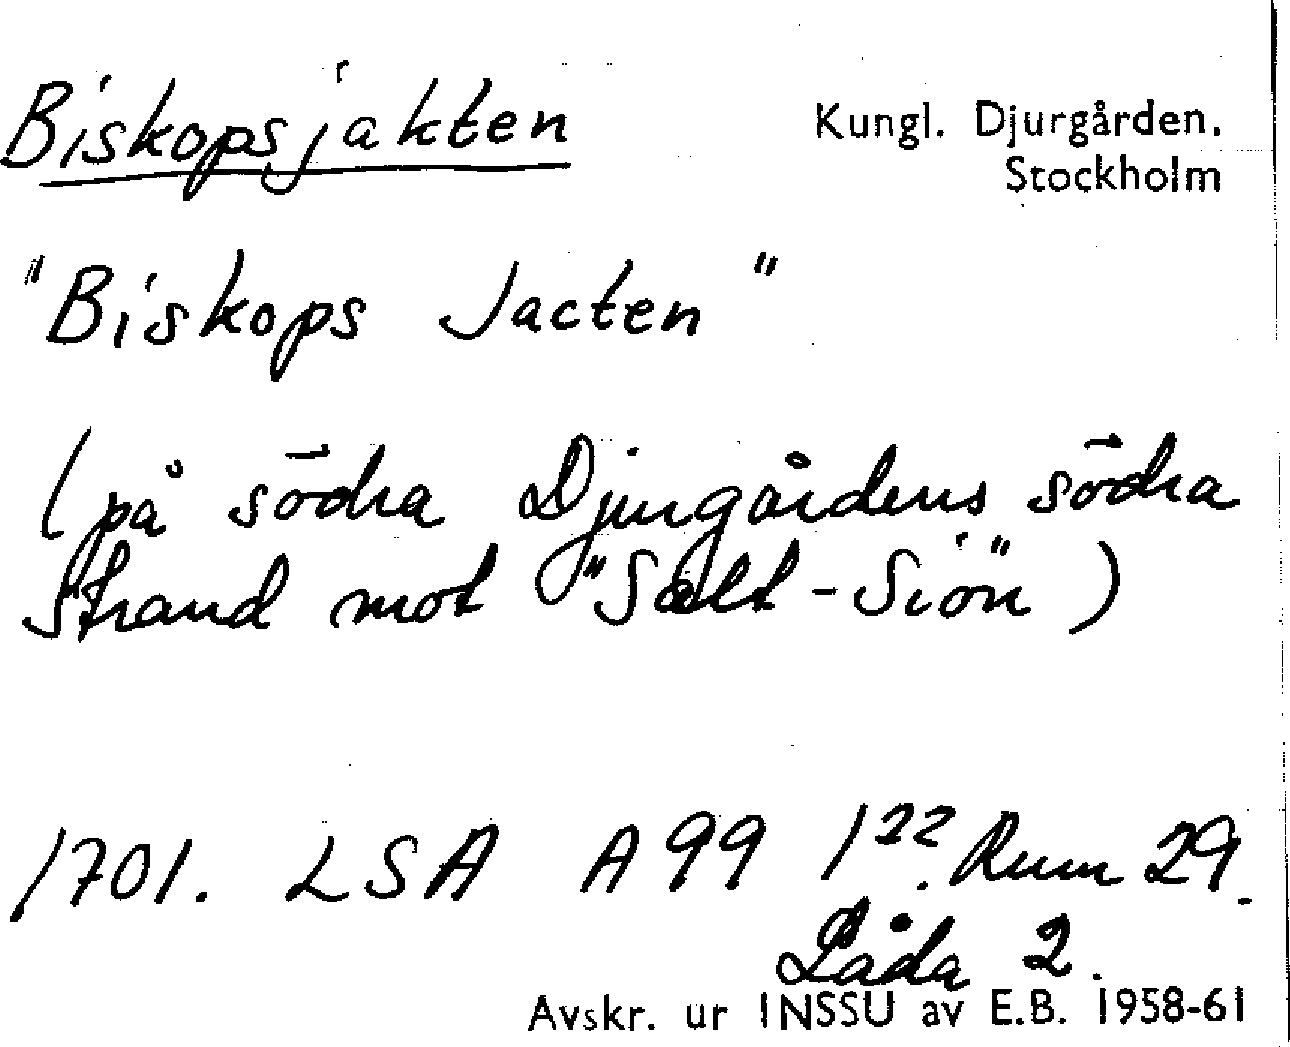 Biskopsjakten
Kungl. Djurgården.
Stockholm
"Biskops Jacten"
(på södra Djurgårdens södra
Strand mot "Salt-Siön")
1701. LSA A 99 1²². Rum 29.
Låda 2.
Avskr. ur INSSU av E.B. 1958-61